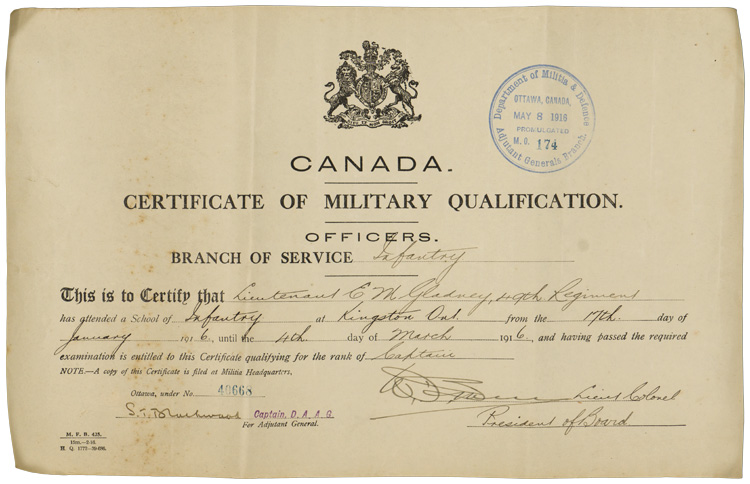 Department of Militia & Defence
OTTAWA, CANADA,
MAY 8 1916
PROMULGATED
M.O. 174
Adjutant Generals Branch.
CANADA.
CERTIFICATE OF MILITARY QUALIFICATION.
OFFICERS.
BRANCH OF SERVICE Infantry
This is to Certify that Lieutenant E M Gladney, 49th Regiment
has attended a School of Infantry at Kingston Ont. from the 17th. day of
January 1916, until the 4th. day of March 1916, and having passed the required
examination is entitled to this Certificate qualifying for the rank of Captain
NOTE.—A copy of this Certificate is filed at Militia Headquarters.
Ottawa, under No. 40668
Lieut Colonel
Captain, D. A. A. G.
For Adjutant General.
President of Board
M. F. B. 435.
H. Q. 1772-39-696.